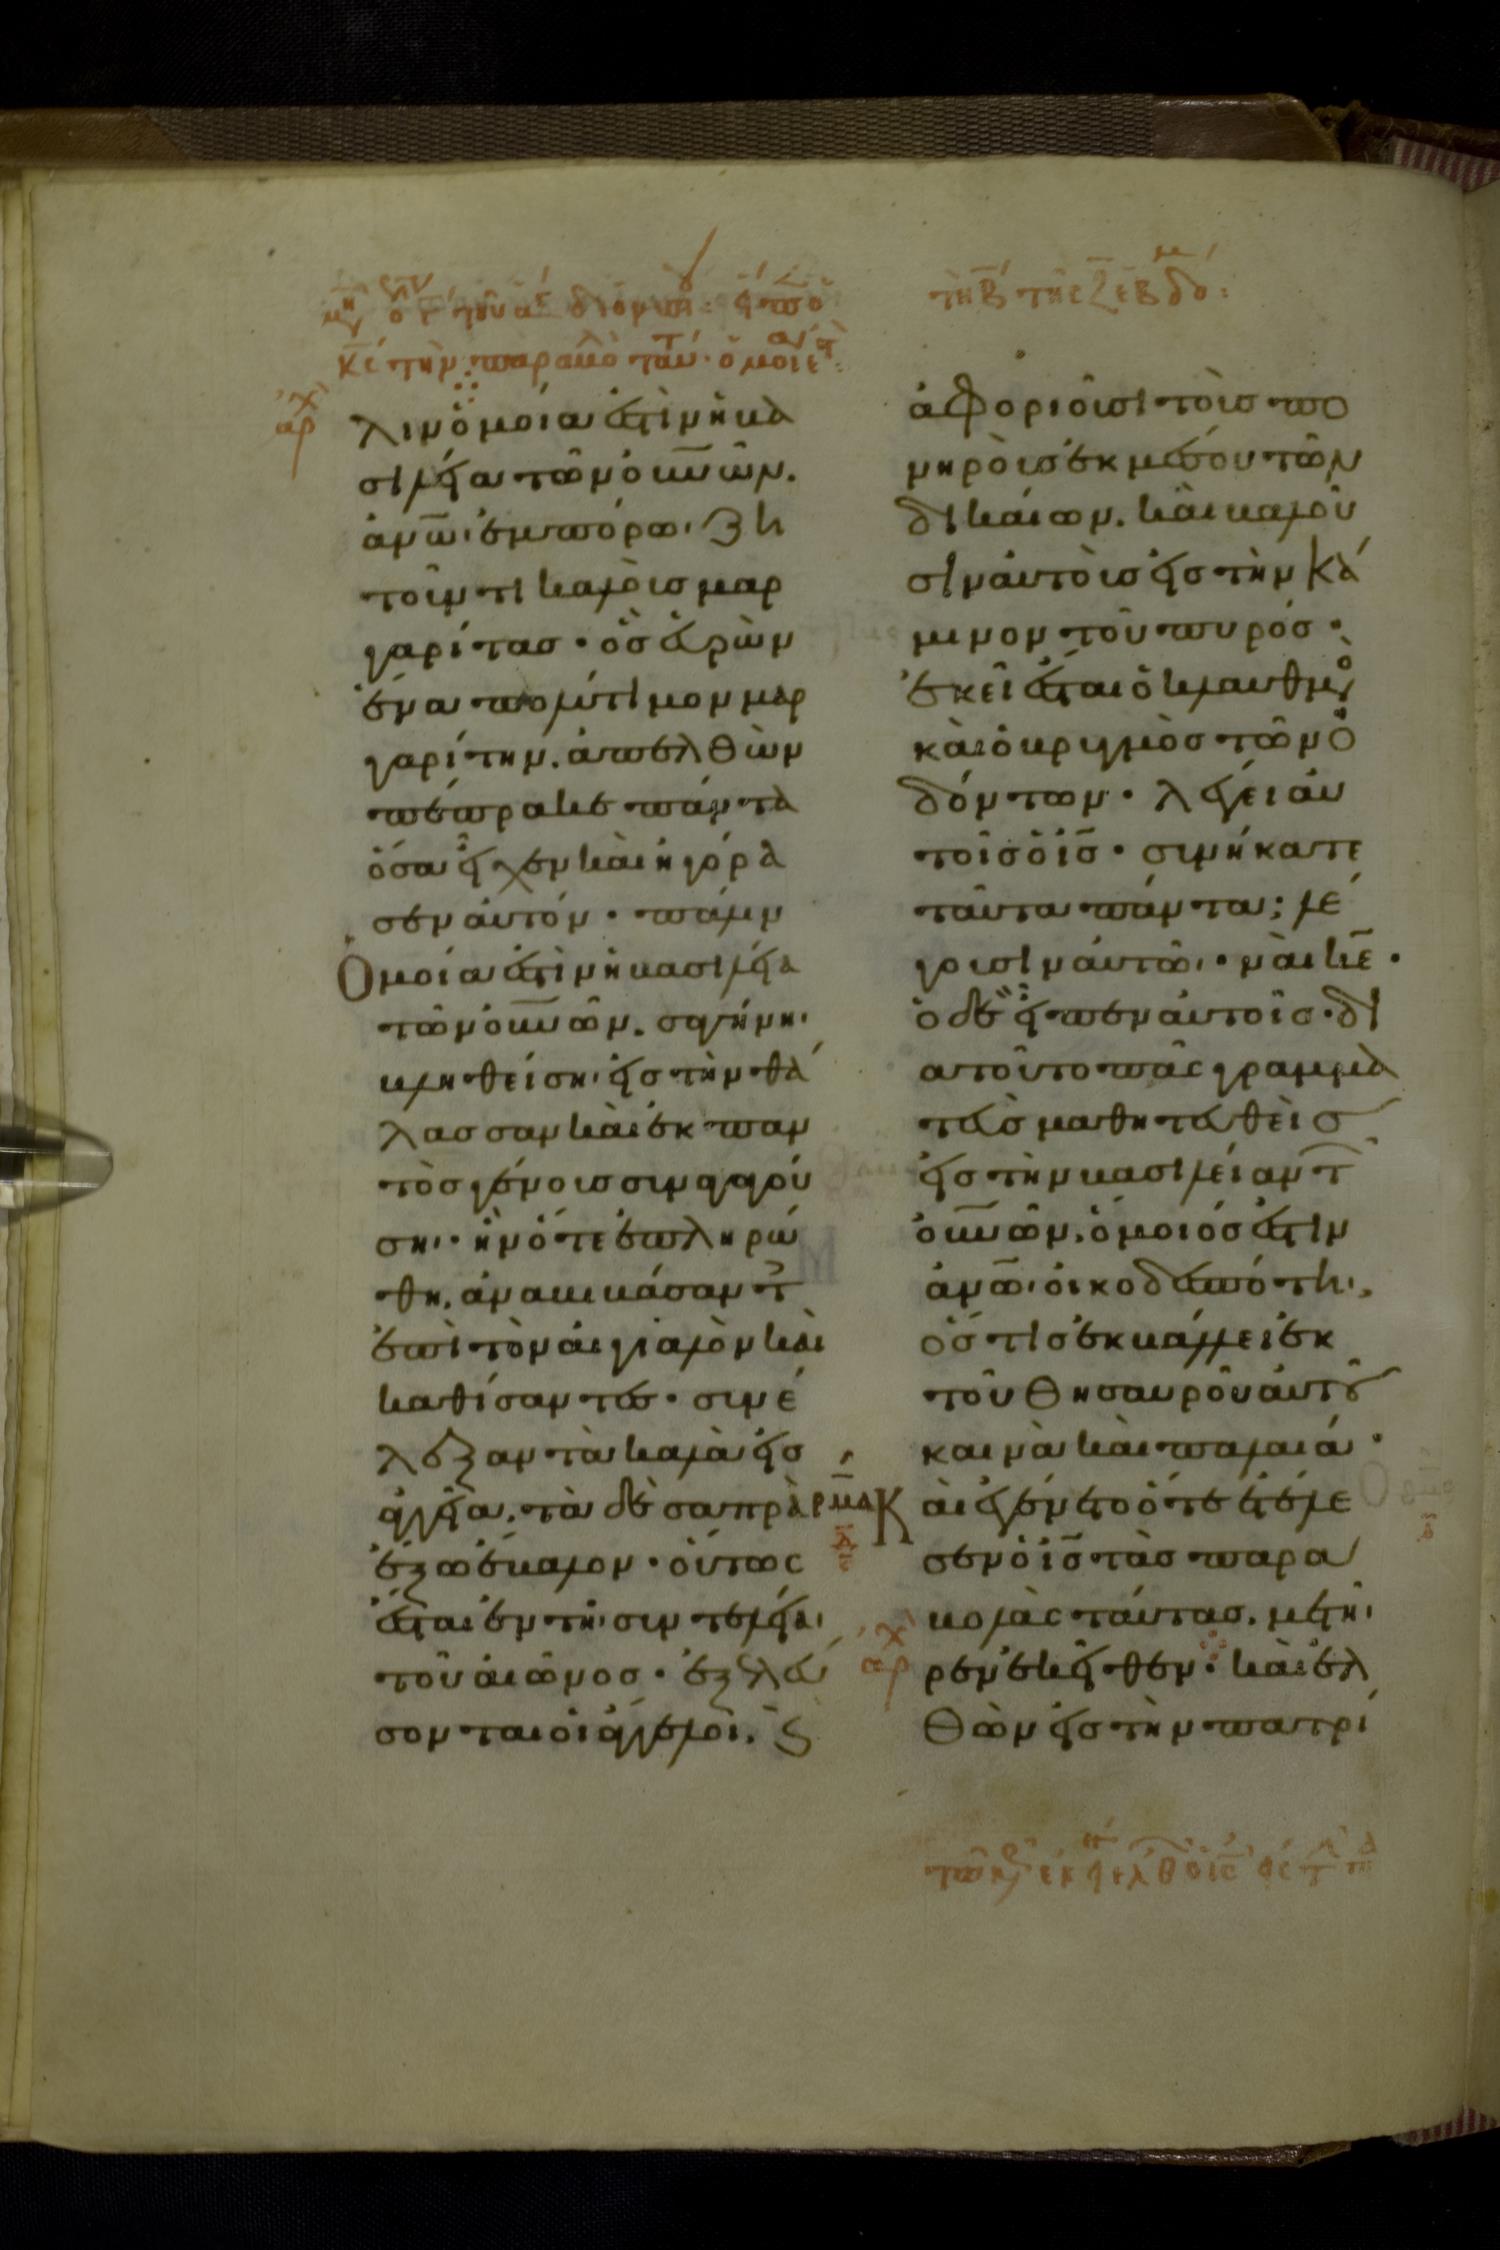 κε τὴν παρα
λιν ὁμοία ἐστὶν ἡ βα
σιλεία τῶν οὐνῶν.
ἀνω ἐμπόρω ζη
τοῦντι καλοὺσ μαρ
γαρίτασ · ὃσ εὑρὼν
ἕνα πολύτιμον μαρ
γαρίτην. ἀπελθὼν
πέπρακε πάντα
ὅσα εἶχεν καὶ ἠγόρα
σεν αὐτόν · πάλιν
Ὁμοία ἐστὶν ἡ βασιλεία
τῶν οὐνῶν. σαγήνη
βληθείση εἰσ τὴν θά
λασσαν καὶ ἐκ παν
τὸσ γένουσ συναγού
ση · ἣν ὅτε ἐπληρώ
θη. ἀναβιβάσαντ
ἐπὶ τὸν αἰγιαλὸν καὶ
καθίσαντεσ · συνέ
λεξαν τὰ καλὰ εἰσ
ἀγγεῖα. τὰ δὲ σαπρὰ
ἔξω ἔβαλον · οὕτως
ἔσται ἐν τῆ συντελεία
τοῦ αἰῶνοσ · ἐξελεύ
σονται οἱ ἄγγελοι. ϗ
τῆ β τῆς ἑβδο :
ἀφοριοῦσι τοὺσ πο
νηροὺσ ἐκ μέσου τῶν
δικαίων. καὶ βαλοῦ
σιν αὐτοὺσ εἰσ τὴν κά
μινον τοῦ πυρόσ ·
ἐκεῖ ἔσται ὁ κλαυθμὸ
καὶ ὁ βρυγμὸσ τῶν ὀ
δόντων · λέγει αὐ
τοῖσ ὁ ισ · συνήκατε
ταῦτα πάντα; λέ
γουσιν αὐτῶ · ναὶ κε ·
ὁ δὲ εἶπεν αὐτοῖσ · δι
ατοῦτο πᾶς γραμμα
τεὺσ μαθητευθεὶσ
εἰσ τὴν βασιλείαν τ
οὐνῶν. ὅμοιόσ ἐστιν
ἀνω οἰκοδεσπότη,
ὅστισ ἐκβάλλει ἐκ
τοῦ θησαυροῦ αὐτοῦ
καινὰ καὶ παλαιά ·
Καὶ ἐγένετο ὅτε ἐτέλε
σεν ὁ ισ τὰσ παρα
βολὰς ταύτασ. μετῆ
ρεν ἐκεῖθεν · καὶ ἐλ
θὼν εἰσ τὴν πατρί